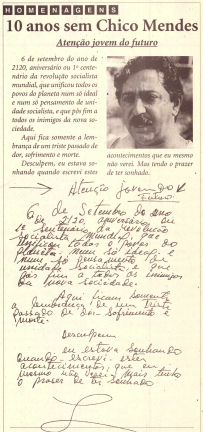 HOMENAGENS
10 anos sem Chico Mendes
Atenção jovem do futuro
6 de setembro do ano de
2120, aniversário ou 1º cente-
nário da revolução socialista
mundial, que unificou todos os
povos do planeta num só ideal
e num só pensamento de uni-
dade socialista, e que pôs fim a
todos os inimigos da nova so-
ciedade.
Aqui fica somente a lem-
brança de um triste passado de
dor, sofrimento e morte.
Desculpem, eu estava so-
nhando quando escrevi estes
acontecimentos que eu mesmo
não verei. Mas tendo o prazer
de ter sonhado.
Atenção jovem do
Futuro
6 de Setembro do ano
de 2120, aniversario ou
1º centenario da revolução
Socialista Mundial, que
unificou todos os povos do
planeta num só ideal e
num só pensamento de
unidade Socialista, e que
pos fim a todos os inimigos
da nova Sociedade.
Aqui ficam somente
a lembrança de um triste
passado de dor sofrimento e
morte.
Desculpem
eu estava sonhando
quando escrevi estes
acontecimentos; que eu
mesmo não verei mais tenho
o prazer de ter sonhado